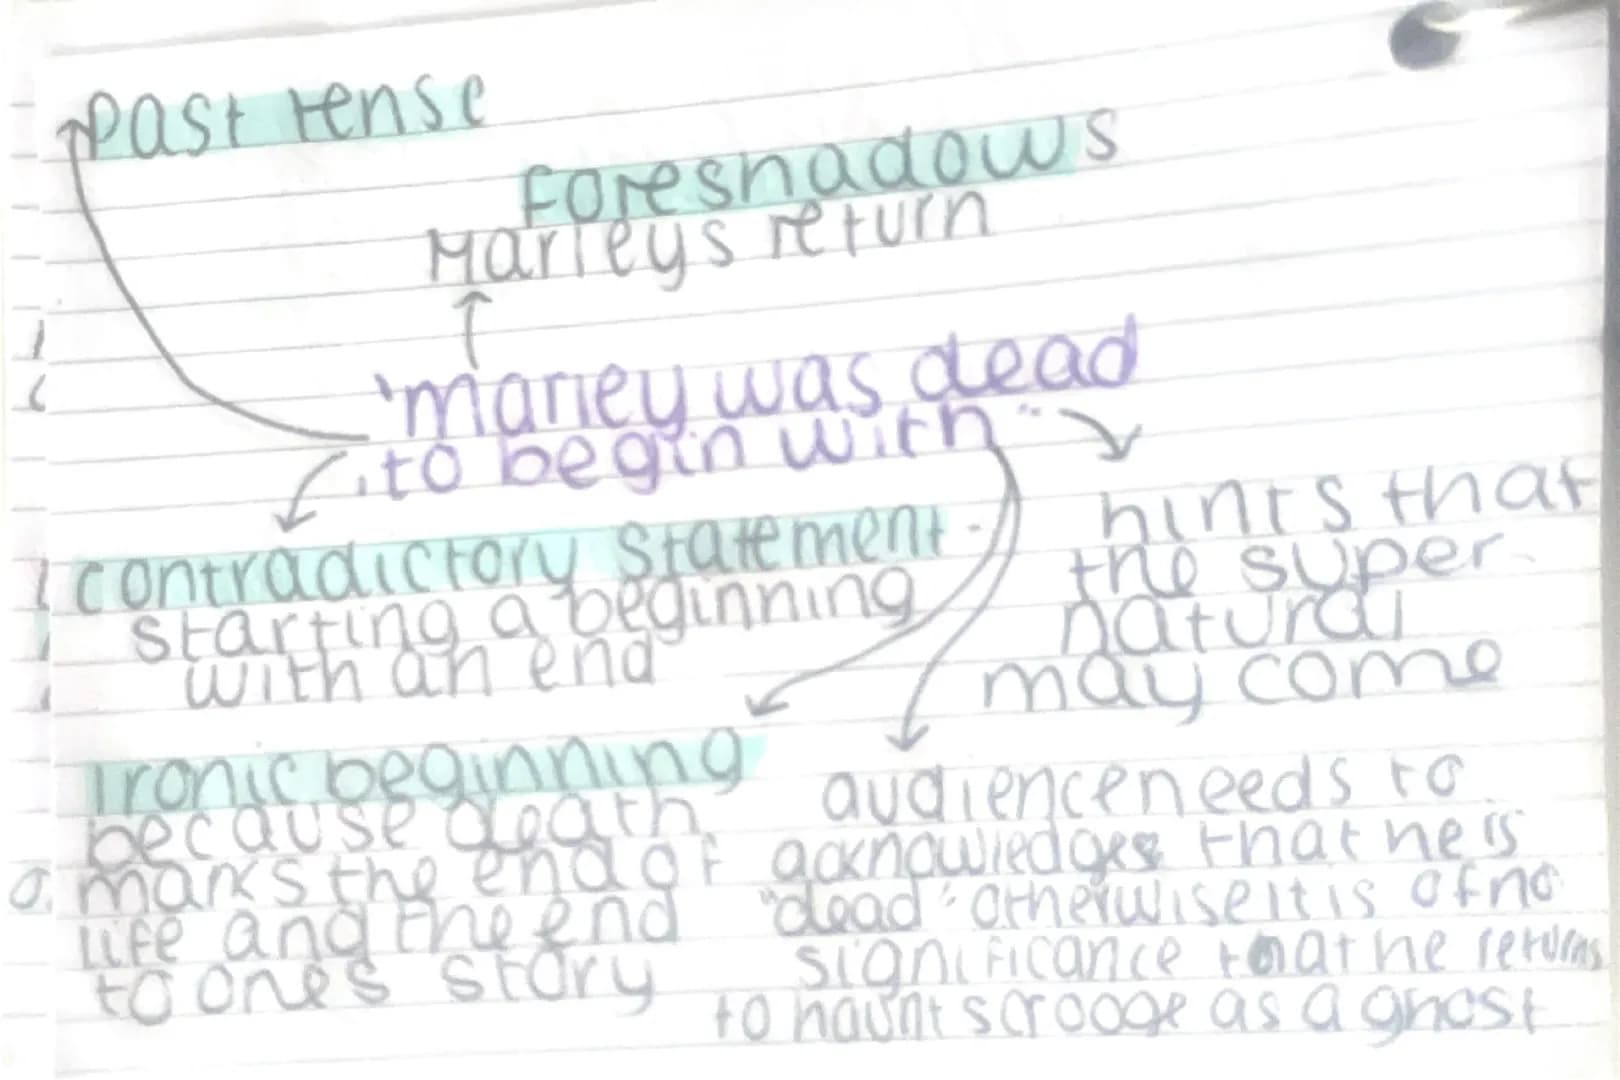 Past tense
foreshadows
Marleys return
'marley was dead
to begin with"
contradictory statement -
starting a beginning
with an end
hints that
the super-
natural
may come
Ironic beginning
because death
marks the end of
life and the end
to one's story
audience needs to
acknowledges that he is
"dead" otherwise it is of no
significance that he returns
to haunt scrooge as a ghost